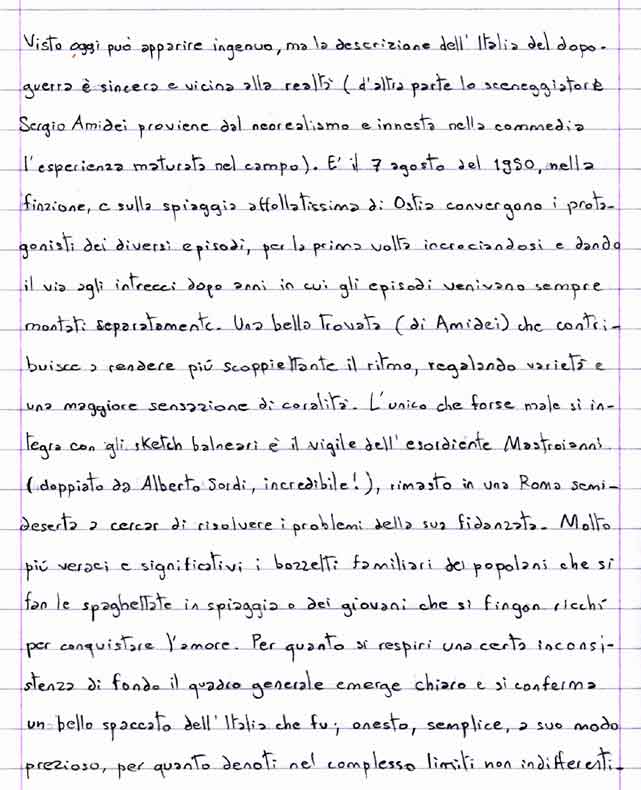 Visto oggi può apparire ingenuo, ma la descrizione dell'Italia del dopo-
guerra è sincera e vicina alla realtà (d'altra parte lo sceneggiatore
Sergio Amidei proviene dal neorealismo e innesta nella commedia
l'esperienza maturata nel campo). E' il 7 agosto del 1950, nella
finzione, e sulla spiaggia affollatissima di Ostia convergono i prota-
gonisti dei diversi episodi, per la prima volta incrociandosi e dando
il via agli intrecci dopo anni in cui gli episodi venivano sempre
montati separatamente. Una bella trovata (di Amidei) che contri-
buisce a rendere più scoppiettante il ritmo, regalando varietà e
una maggiore sensazione di coralità. L'unico che forse male si in-
tegra con gli sketch balneari è il vigile dell'esordiente Mastroianni
(doppiato da Alberto Sordi, incredibile!), rimasto in una Roma semi-
deserta a cercar di risolvere i problemi della sua fidanzata. Molto
più veraci e significativi i bozzetti familiari dei popolani che si
fan le spaghettate in spiaggia o dei giovani che si fingon ricchi
per conquistare l'amore. Per quanto si respiri una certa inconsi-
stenza di fondo il quadro generale emerge chiaro e si conferma
un bello spaccato dell'Italia che fu; onesto, semplice, a suo modo
prezioso, per quanto denoti nel complesso limiti non indifferenti.